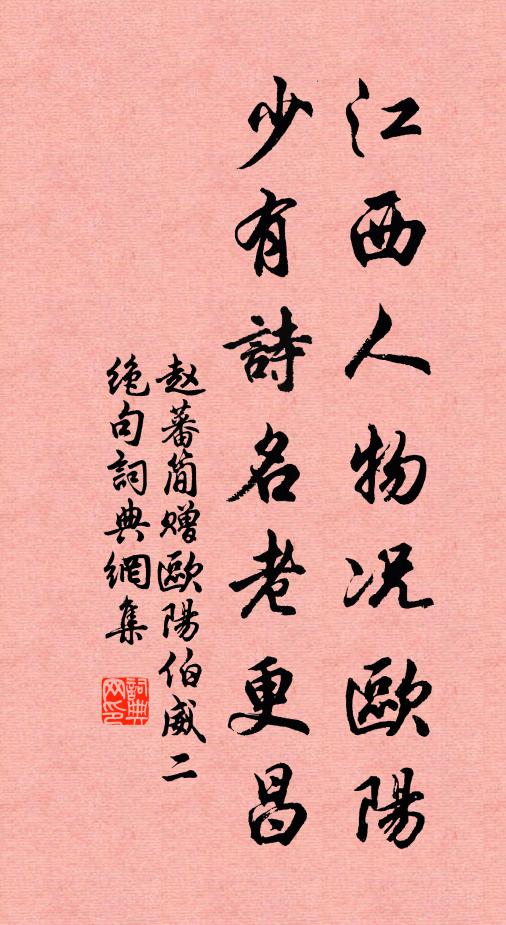 江西人物况歐陽
少有詩名老更昌
赵蕃简赠歐陽伯威二
絶句詞典網集
詞典网印